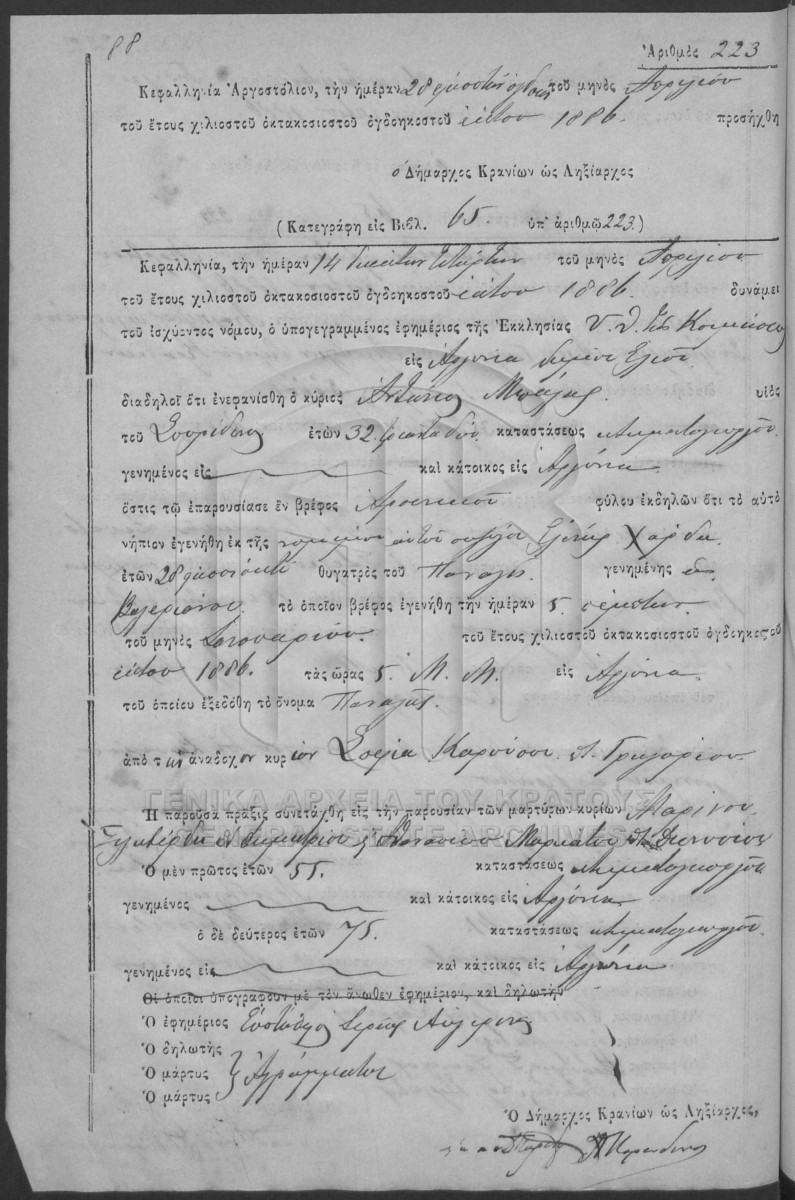 88
Ἀριθμὸς 223
Κεφαλληνία Ἀργοστόλιον, τὴν ἡμέραν 28 εἰκοστὴν ὀγδόην τοῦ μηνὸς Ἀπριλίου
τοῦ ἔτους χιλιοστοῦ ὀκτακοσιοστοῦ ὀγδοηκοστοῦ ἕκτου 1886. προσήχθη
ὁ Δήμαρχος Κρανίων ὡς Ληξίαρχος
(Κατεγράφη εἰς Βιβλ. 65. ὑπ' ἀριθμῷ 223.)
Κεφαλληνία, τὴν ἡμέραν 14 δεκάτην τετάρτην τοῦ μηνὸς Ἀπριλίου
τοῦ ἔτους χιλιοστοῦ ὀκτακοσιοστοῦ ὀγδοηκοστοῦ ἕκτου 1886. δυνάμει
τοῦ ἰσχύοντος νόμου, ὁ ὑπογεγραμμένος ἐφημέριος τῆς Ἐκκλησίας Υ. Θ. τῆς Κοιμήσεως
εἰς Ἀργίνια
διαδηλοῖ ὅτι ἐνεφανίσθη ὁ κύριος Ἀντώνιος υἱὸς
τοῦ Σπυρίδωνος ἐτῶν 32 τριάκοντα δύο. καταστάσεως κτηματογεωργοῦ.
γενημένος εἰς καὶ κάτοικος εἰς Ἀργίνια
ὅστις τῷ ἐπαρουσίασε ἓν βρέφος Ἀρσενικοῦ φύλου ἐκδηλῶν ὅτι τὸ αὐτὸ
νήπιον ἐγενήθη ἐκ τῆς νομίμου αὐτοῦ συζύγου Ἑλένης
ἐτῶν 28 εἰκοσιοκτὼ θυγατρὸς τοῦ Παναγῆ. γενημένης
Βαλεριάνου. τὸ ὁποῖον βρέφος ἐγενήθη τὴν ἡμέραν 5. πέμπτην
τοῦ μηνὸς Ἰανουαρίου. τοῦ ἔτους χιλιοστοῦ ὀκτακοσιοστοῦ ὀγδοηκοστοῦ
ἕκτου 1886. τὰς ὥρας 5. Μ. Μ. εἰς Ἀργίνια.
τοῦ ὁποίου ἐξεδόθη τὸ ὄνομα Παναγῆς.
ἀπὸ τὴν ἀνάδοχον κυρίαν Σοφία Γρηγορίου.
ΓΕΝΙΚΑ ΑΡΧΕΙΑ ΤΟΥ ΚΡΑΤΟΥΣ
GENERAL STATE ARCHIVES
Ἡ παροῦσα πρᾶξις συνετάχθη εἰς τὴν παρουσίαν τῶν μαρτύρων κυρίων Μαρίνου
Δημητρίου Διονυσίου
Ὁ μὲν πρῶτος ἐτῶν 55. καταστάσεως κτηματογεωργοῦ
γενημένος καὶ κάτοικος εἰς Ἀργίνια
ὁ δὲ δεύτερος ἐτῶν 75. καταστάσεως κτηματογεωργοῦ.
γενημένος εἰς καὶ κάτοικος εἰς Ἀργίνια
Οἱ ὁποῖοι ὑπογράφουν μὲ τὸν ἄνωθεν ἐφημέριον, καὶ δηλωτὴν
Ὁ ἐφημέριος Εὐστάθιος ἱερεὺς
Ὁ δηλωτὴς
Ὁ μάρτυς Ἀγράμματοι
Ὁ μάρτυς
Ὁ Δήμαρχος Κρανίων ὡς Ληξίαρχος,